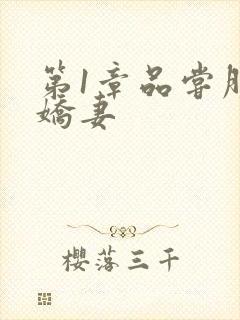 第1章品尝胴
娇妻
樱落三千